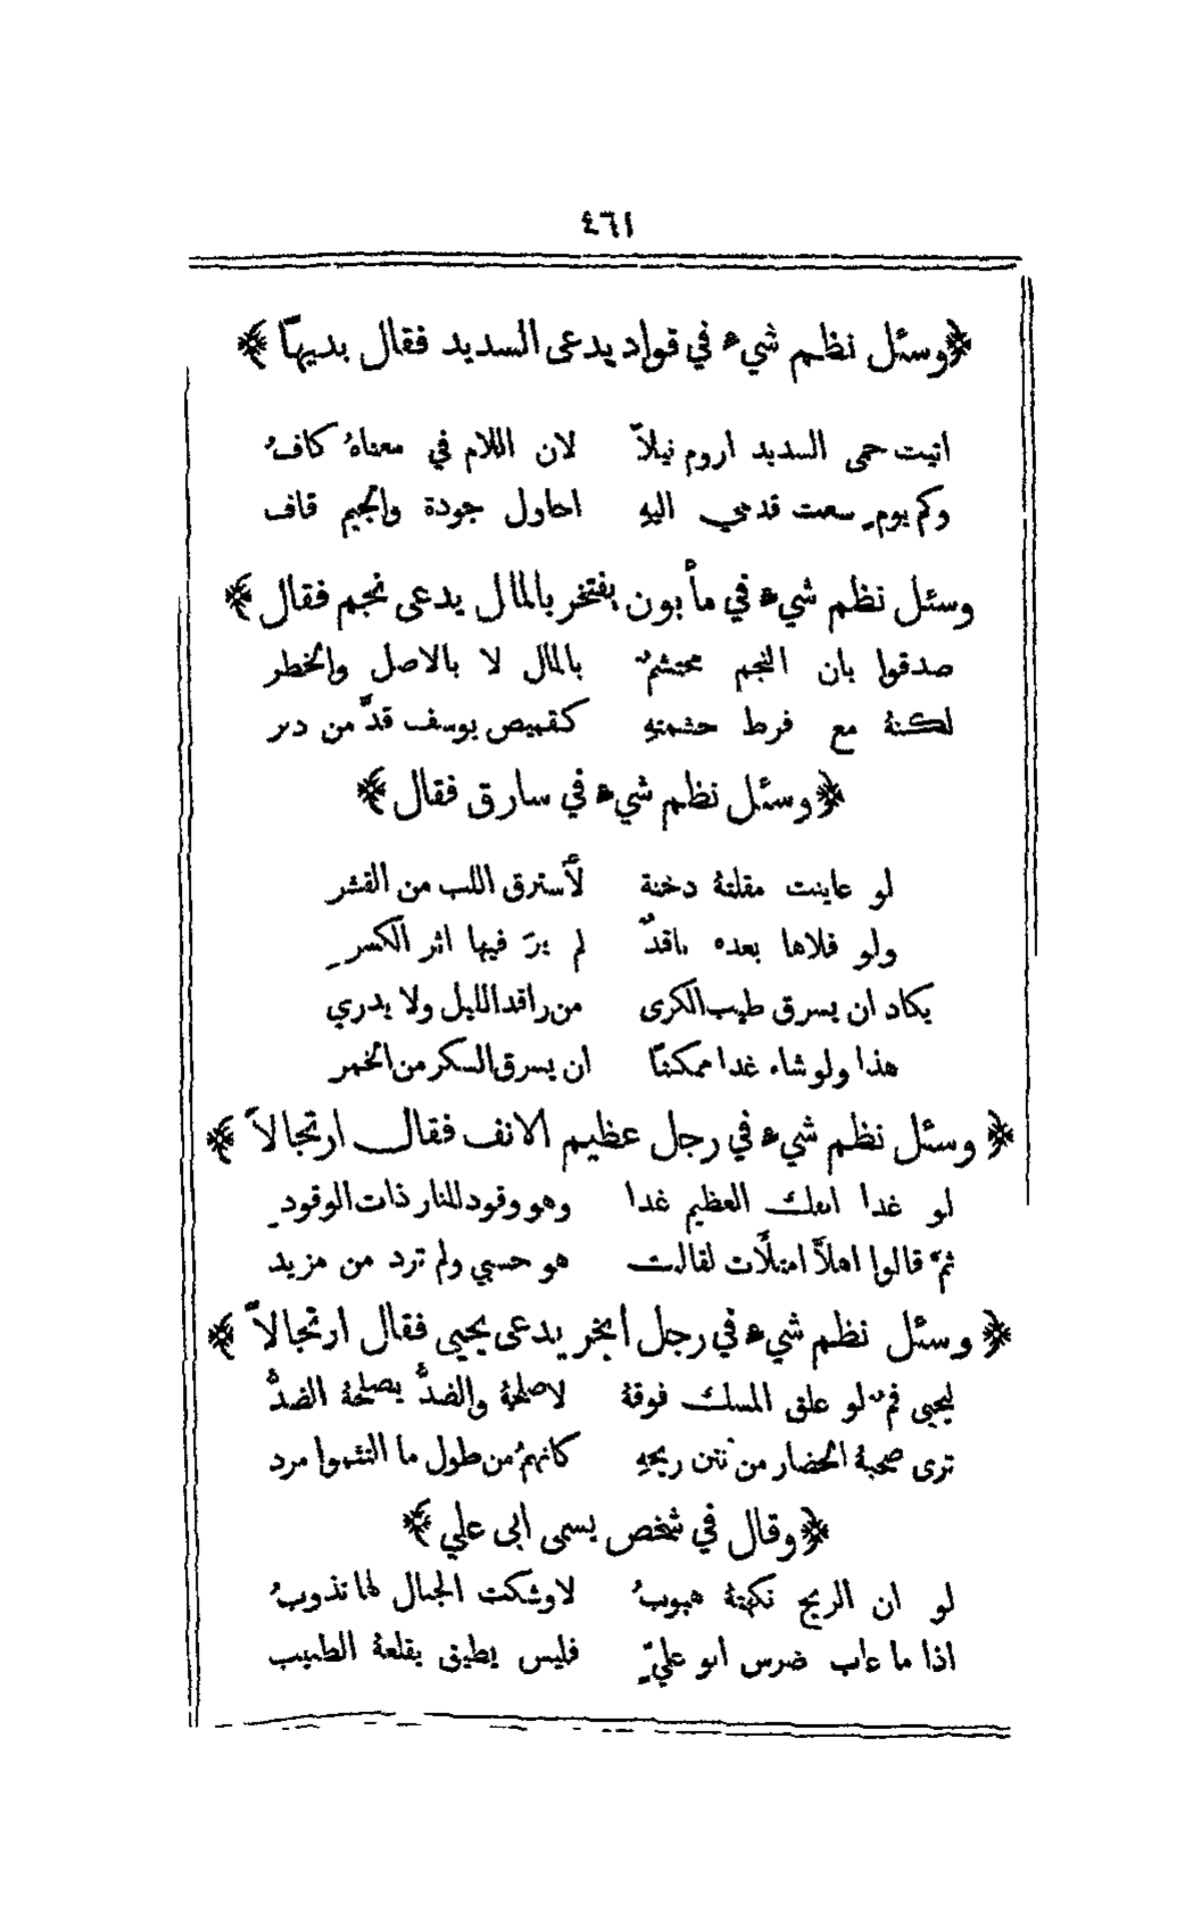 ٤٦١
﴿وسئل نظم شيء في قواد يدعى السديد فقال بديهاً﴾
اتيت حمى السديد اروم نيلاً لان اللام في معناهُ كافُ
وكم يومٍ سعت قدمي اليهِ احاول جودة والجيم قاف
وسئل نظم شيء في مأبون يفتخر بالمال يدعى نجم فقال﴾
صدقوا بان النجم محتشمٌ بالمال لا بالاصل والخطر
لكنهُ مع فرط حشمتهِ كقميص يوسف قدَّ من دبر
﴿وسئل نظم شيء في سارق فقال﴾
لو عاينت مقلتهُ دخنة لأسترق اللب من القشر
ولو فلاها بعده ناقدٌ لم يرَ فيها اثر الكسرِ
يكاد ان يسرق طيب الكرى من راقد الليل ولا يدري
هذا ولو شاء غدا ممكنًا ان يسرق السكر من الخمر
﴿وسئل نظم شيء في رجل عظيم الانف فقال ارتجالاً﴾
لو غدا انفك العظيم غدا وهو وقود للنار ذات الوقودِ
ثمَّ قالوا املأ امتلأت لقالت هو حسبي ولم ترد من مزيد
﴿وسئل نظم شيء في رجل ابخر يدعى يحيى فقال ارتجالاً﴾
ليحيى فمٌ لو علق المسك فوقهُ لاصلحهُ والضدُّ يصلحهُ الضدُّ
ترى صحبهُ الحضار من نتن ريحهِ كانهمُ من طول ما التثموا مرد
﴿وقال في شخص يسمى ابى علي﴾
لو ان الريح نكهتهُ هبوبُ لاوشكت الجبال لها تذوبُ
اذا ما عاب ضرس ابو عليٍّ فليس يطيق يقلعهُ الطبيب